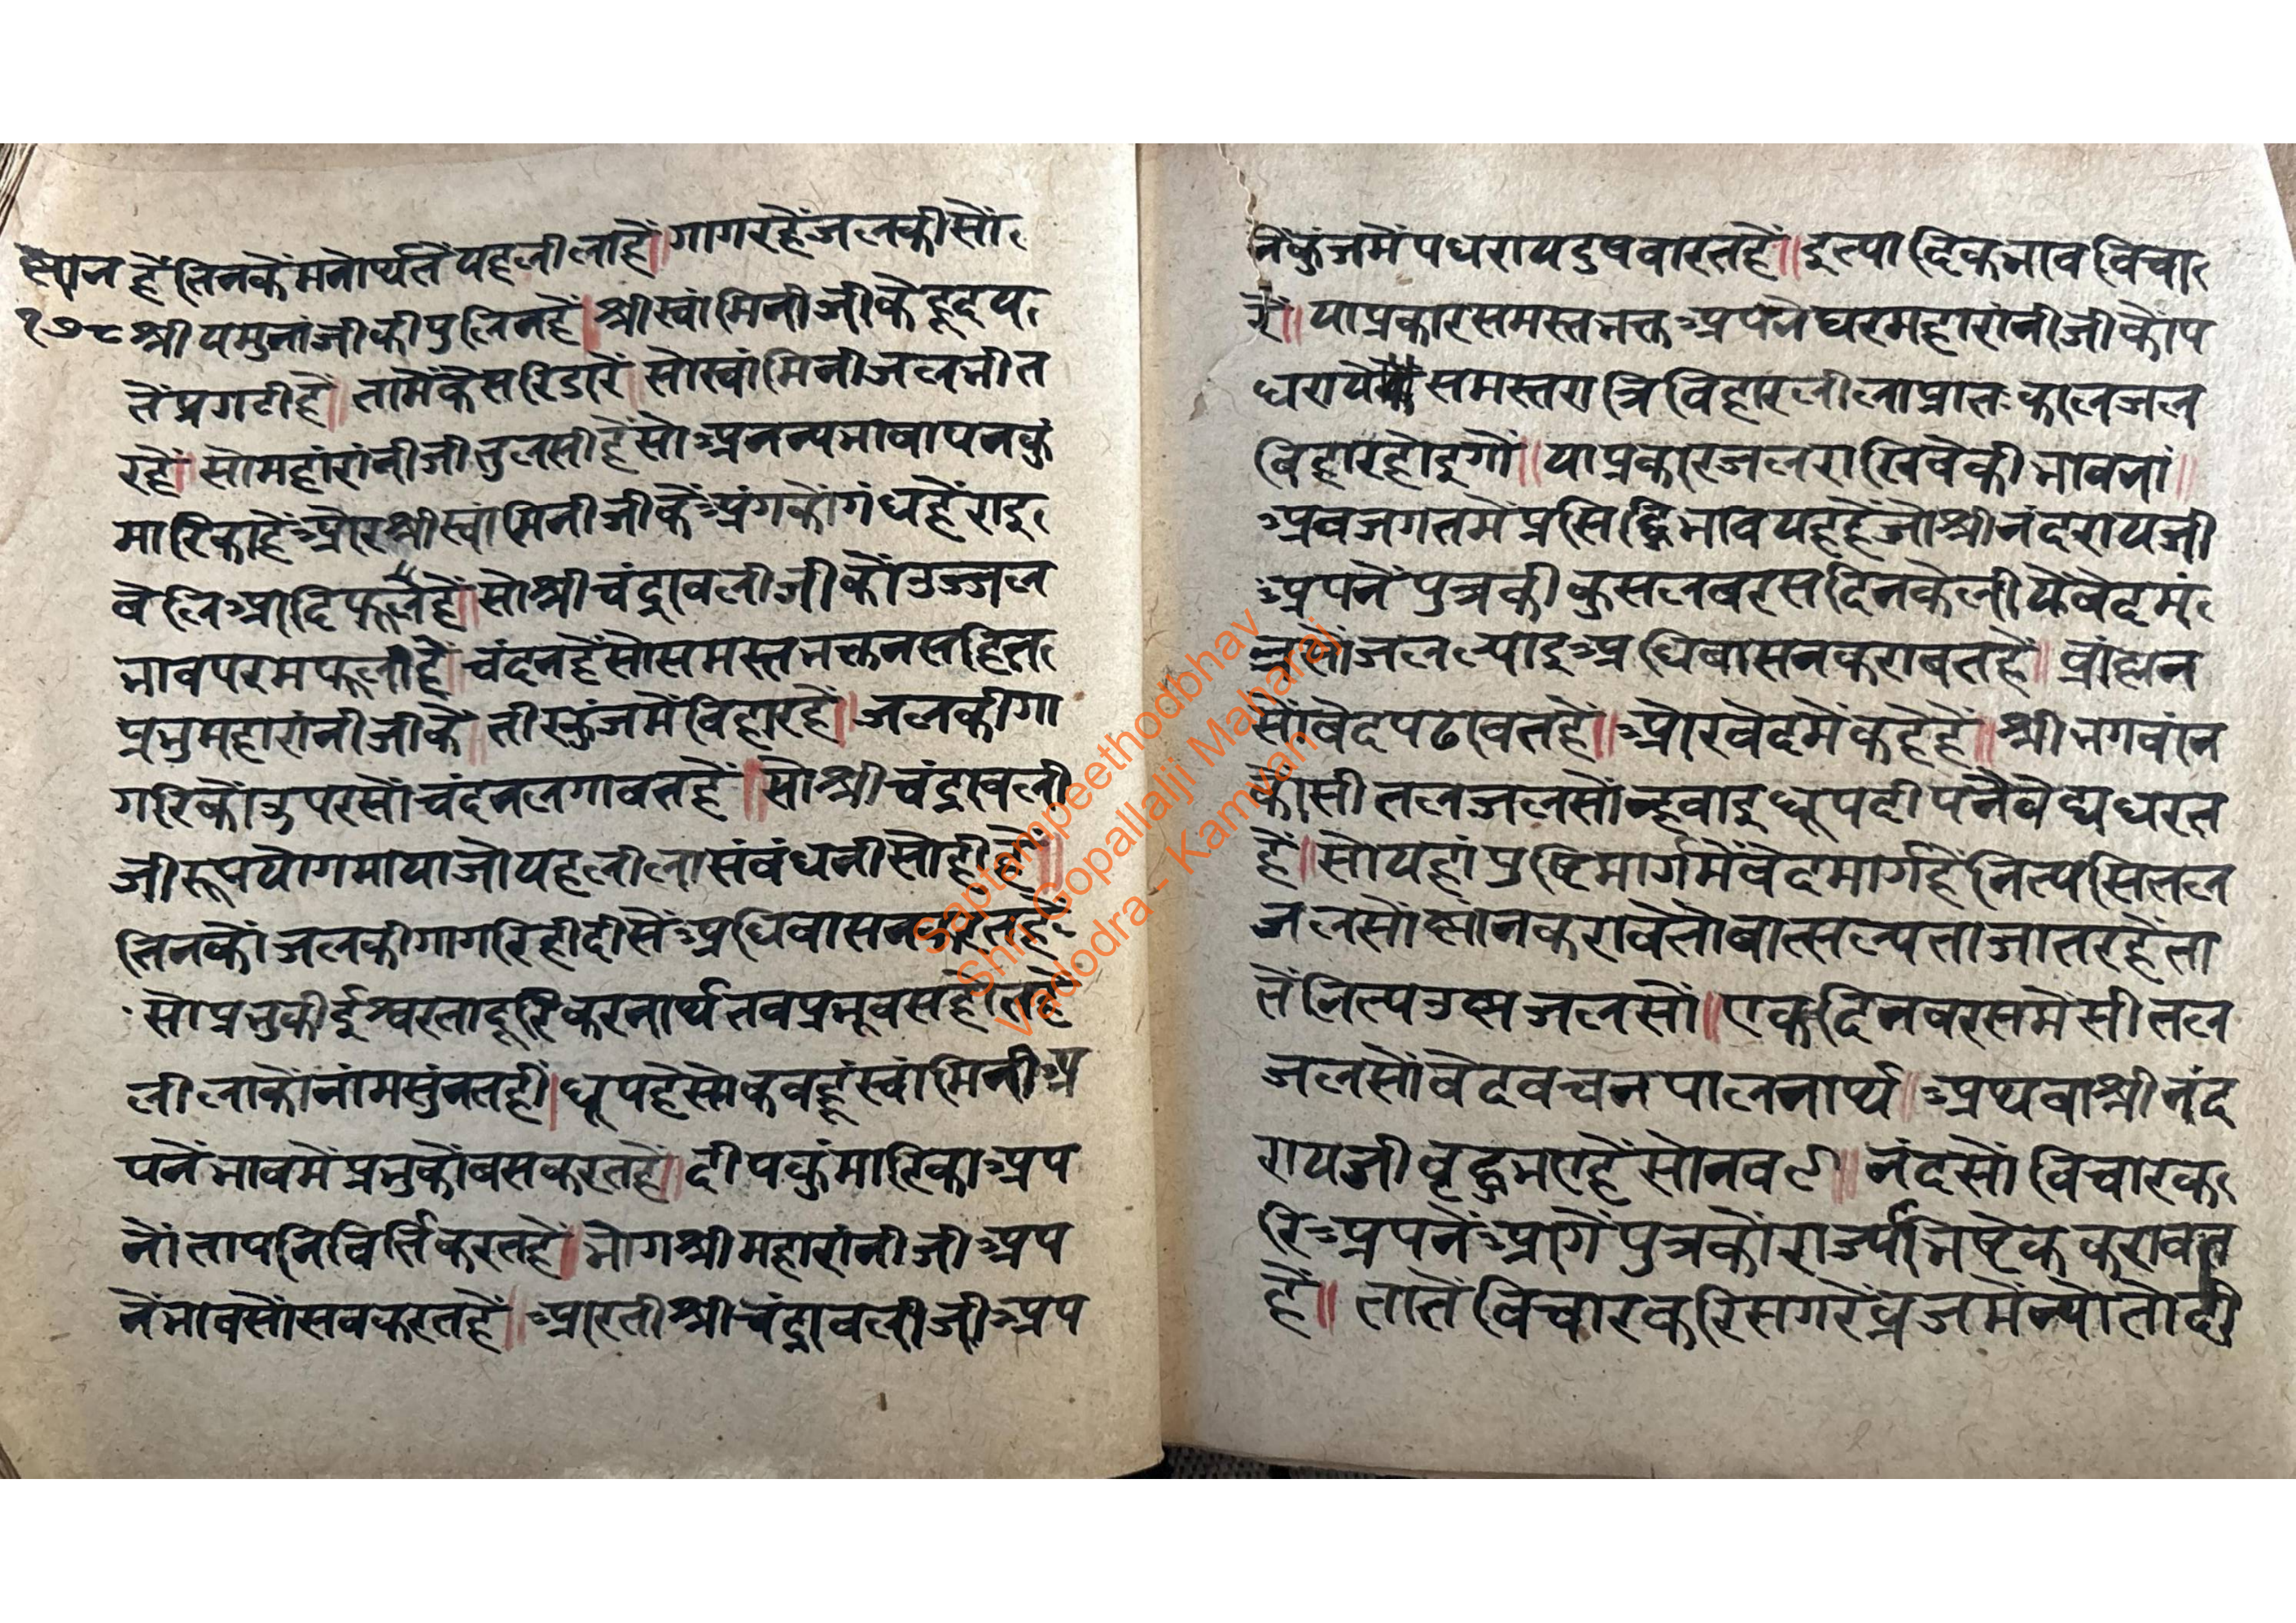 स्नान हैं तिनकेंमनोर्थतेंयहलीलाहैं॥गागरहैंजलकीसों
१७८ श्रीयमुनांजीकीपुलिनहैं॥श्रीस्वांमिनीजीकेहृदय
तेंप्रगटीहैं॥तामेंकेंसरिडारें॥सोस्वांमिनीजलभीत
रहैं॥सोमहांरांनीजीतुलसीहैंसोअनन्यभाषापनकुं
मारिकाहैंऔरश्रीस्वांमिनीजीकेंअंगकोंगंधहैंराइ
वेलिआदिफूलेंहैं॥सोश्रीचंद्रावलीजीकोंउज्जल
भावपरमफूलीहैं॥चंदनहैंसोसमस्तभक्तनसहित
प्रभुमहारांनीजीकें॥तीरकुंजमेंविहारहैं॥जलकीगा
गरिकोंउपरसोंचंदनलगावतहैं॥सोश्रीचंद्रावली
जीरूपयोगमायाजोयहलीलासंबंधनीसोहीहैं॥
तिनकोंजलकीगागरिहीदीसेंअधिवासनकरतहैं
सोप्रभुकीईश्वरतादूरिकरनार्थतवप्रभूवसहोतहैं
लीलाकोंनांमसुंनतहीं॥धूपहैसोकवहूंस्वांमिनीअ
पनेंभावमेंप्रभुकोंबसकरतहैं॥दीपकुंमारिकाअप
नोंतापनिविर्तिकरतहैं॥भोगश्रीमहारांनीजीअप
नेंभावसोंसवकरतहैं॥आरतीश्रीचंद्रावलीजीअप
नेंकुंजमेंपधरायदुषवारतहैं॥इत्यादिकभावविचा
रें॥याप्रकारसमस्तभक्तअपनेघरमहारांनीजीकोंप
धरायेसमस्तरात्रिविहारलीलाप्रातःकालजल
विहारहोइगों॥याप्रकारजलराखिवेकीभावनां॥
अवजगतमेंप्रसिद्धिभावयहहैंजोश्रीनंदरायजी
अपनेंपुत्रकीकुसलबरसदिनकेलीयेंवेदमं
त्रसोंजलल्याइअधिवासनकरावतहैं॥व्रांह्मन
सोंवेदपढावतहैं॥औरवेदमेंकहेहैं॥श्रीभगवांन
कोंसीतलजलसोंन्हवाइधूपदीपनैवेद्यधरत
हैं॥सोयहांपुष्टिमार्गमेंवेदमार्गहैंनित्यसितल
जलसोंस्नांनकरावेतोवात्सल्यताजातरहैंता
तेंनित्यउष्मजलसों॥एकदिनवरसमेंसीतल
जलसोंवेदवचनपालनार्थ॥अथवाश्रीनंद
रायजीवृद्धभएहैंसोनवउ॥नंदसोंविचारक
रिअपनेंआगेंपुत्रकोंराज्यभिषेककरावत
हैं॥तातेंविचारकरिसगरेंव्रजमेंन्योतोदी